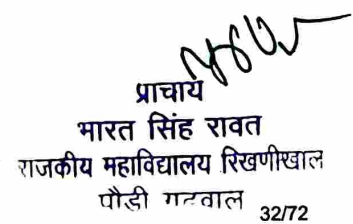 प्राचार्य
भारत सिंह रावत
राजकीय महाविद्यालय रिखणीखाल
पौड़ी गढ़वाल
32/72